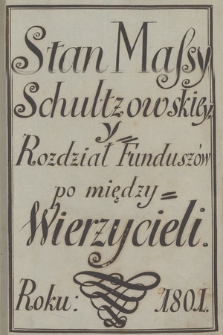 Stan Massy
Schultzowskiey
y
Rozdział Funduszów
po między=
Wierzycieli.
Roku: 1801.